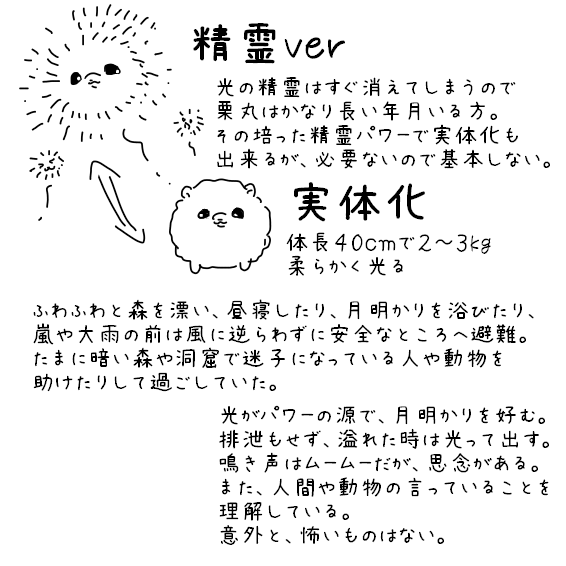 精霊ver
光の精霊はすぐ消えてしまうので
栗丸はかなり長い年月いる方。
その培った精霊パワーで実体化も
出来るが、必要ないので基本しない。
実体化
体長40cmで2～3kg
柔らかく光る
ふわふわと森を漂い、昼寝したり、月明かりを浴びたり、
嵐や大雨の前は風に逆らわずに安全なところへ避難。
たまに暗い森や洞窟で迷子になっている人や動物を
助けたりして過ごしていた。
光がパワーの源で、月明かりを好む。
排泄もせず、溢れた時は光って出す。
鳴き声はムームーだが、思念がある。
また、人間や動物の言っていることを
理解している。
意外と、怖いものはない。